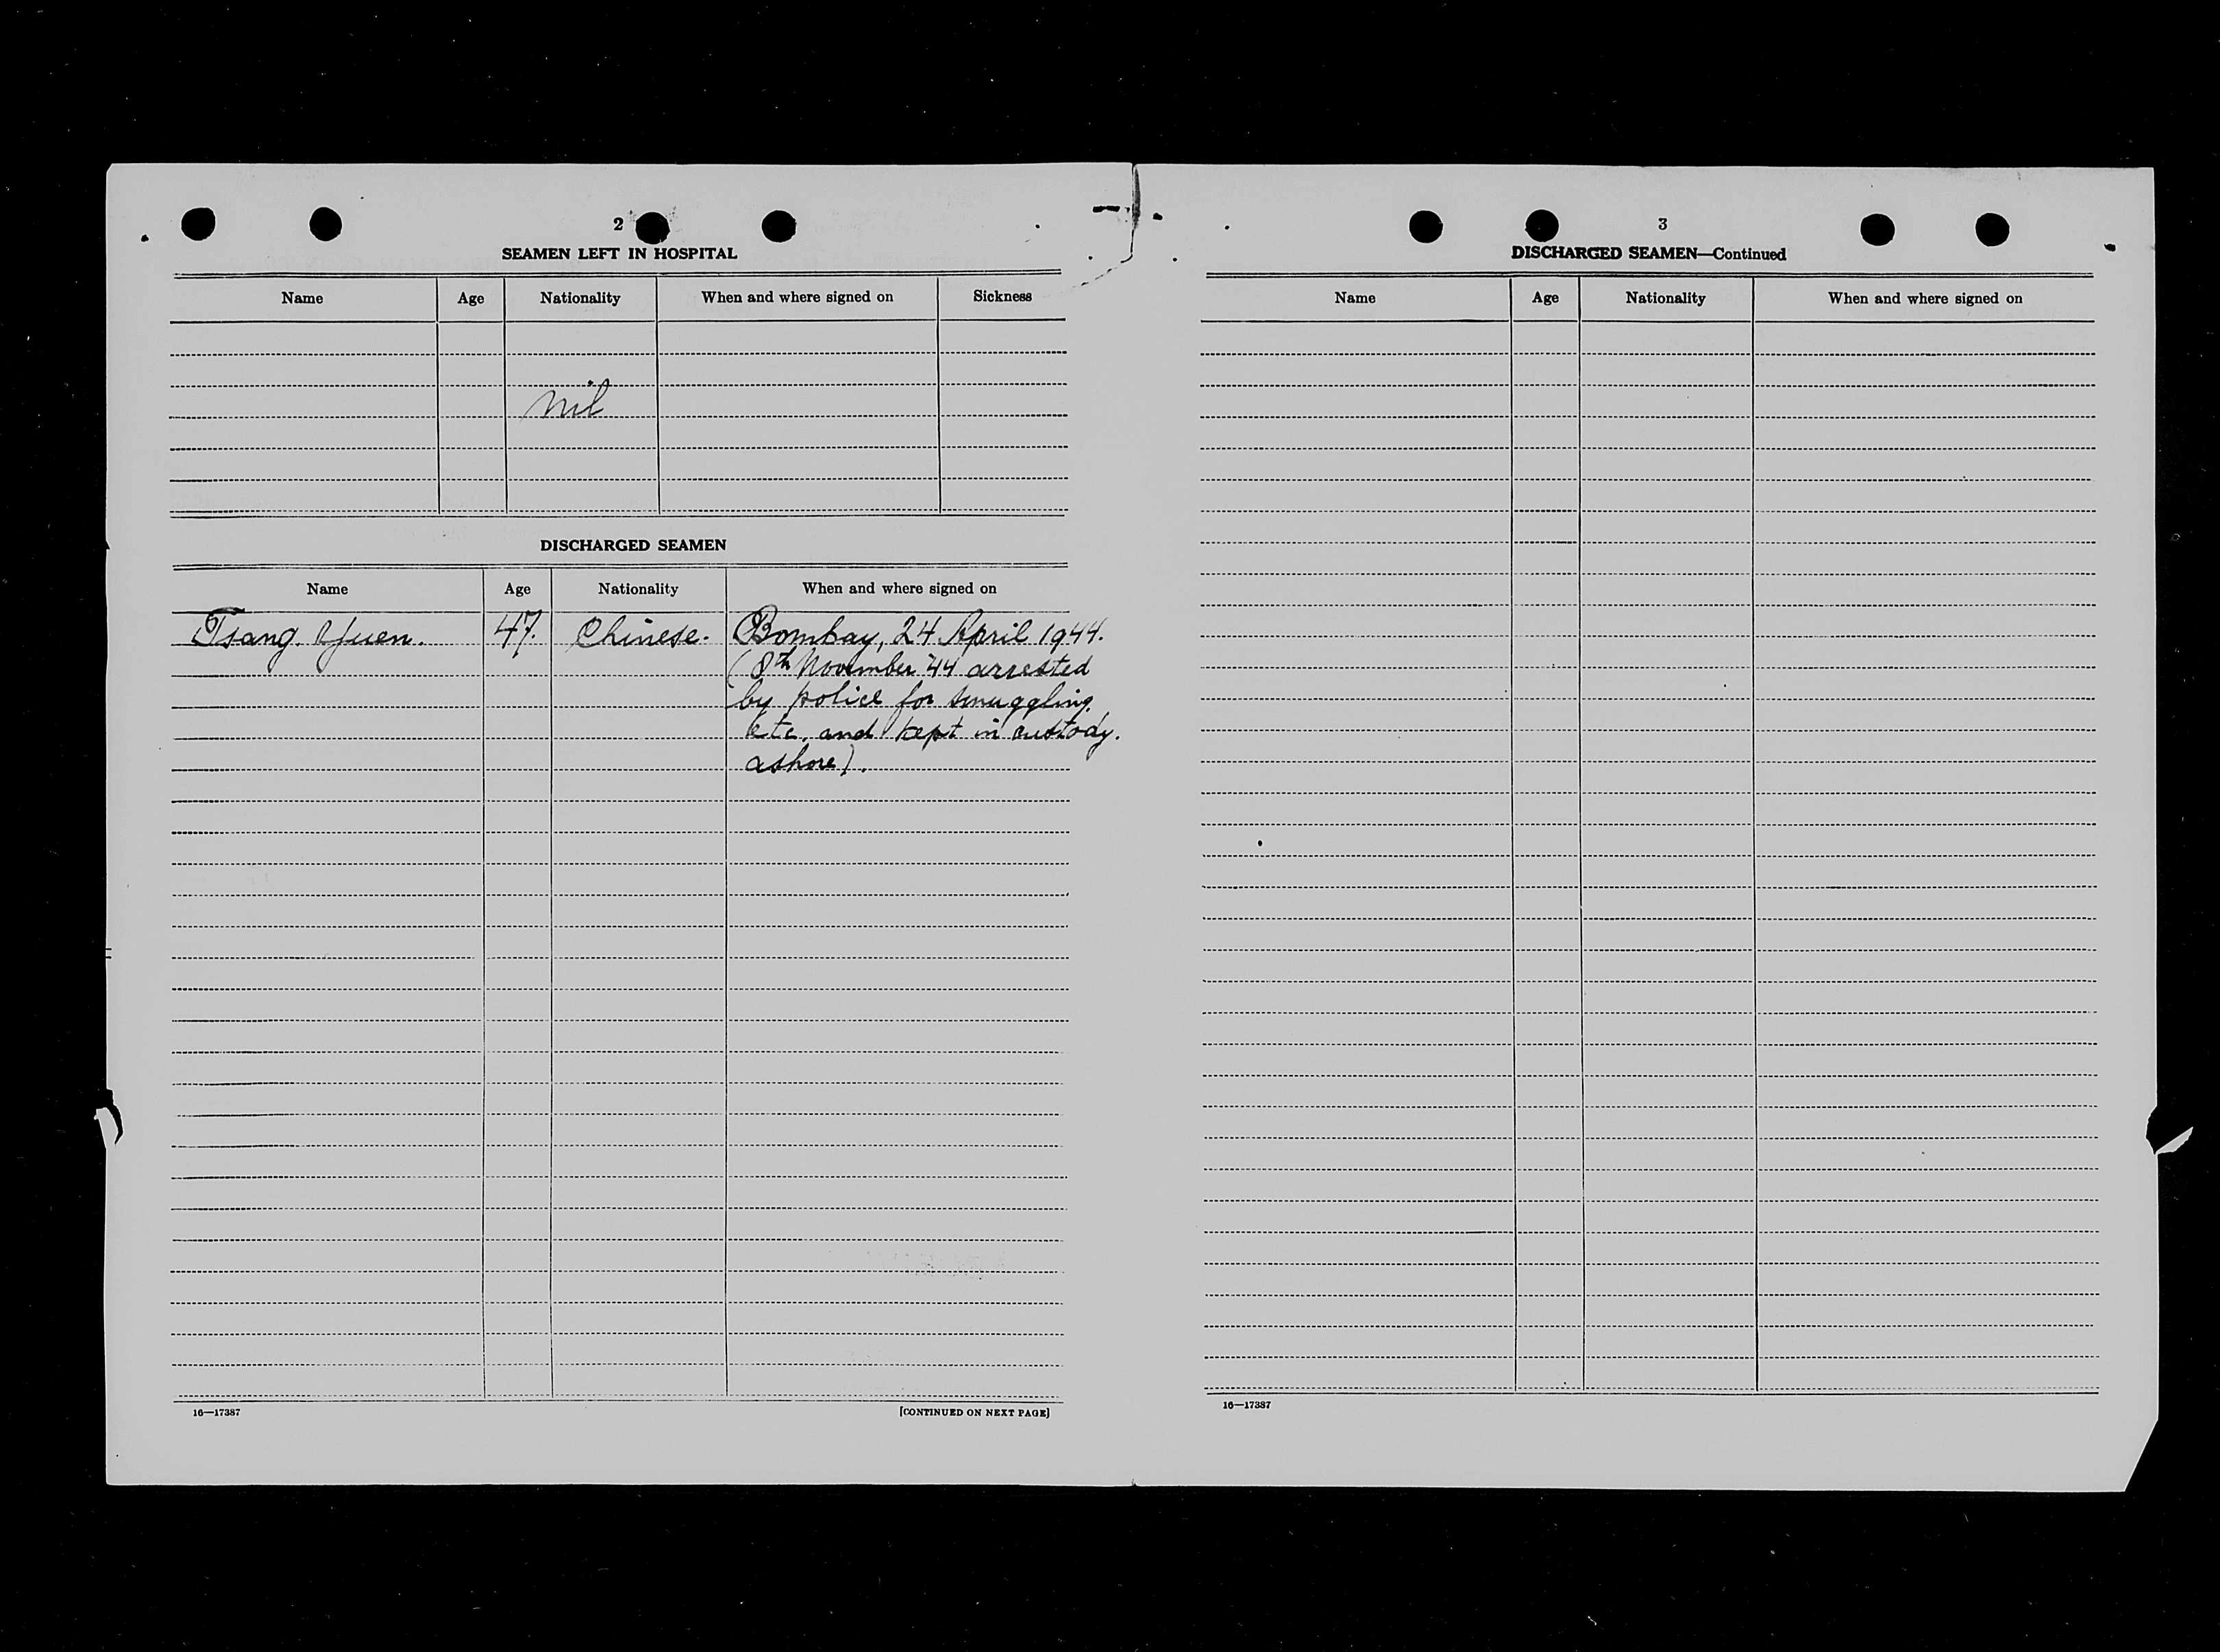 2
SEAMEN LEFT IN HOSPITAL
Name Age Nationality When and where signed on Sickness
nil
DISCHARGED SEAMEN
Name Age Nationality When and where signed on
Tsang Yuen. 47. Chinese. Bombay, 24 April 1944.
(8th November '44 arrested
by police for smuggling
etc. and kept in custody.
ashore).
16—17387 [CONTINUED ON NEXT PAGE]
3
DISCHARGED SEAMEN—Continued
Name Age Nationality When and where signed on
16—17387